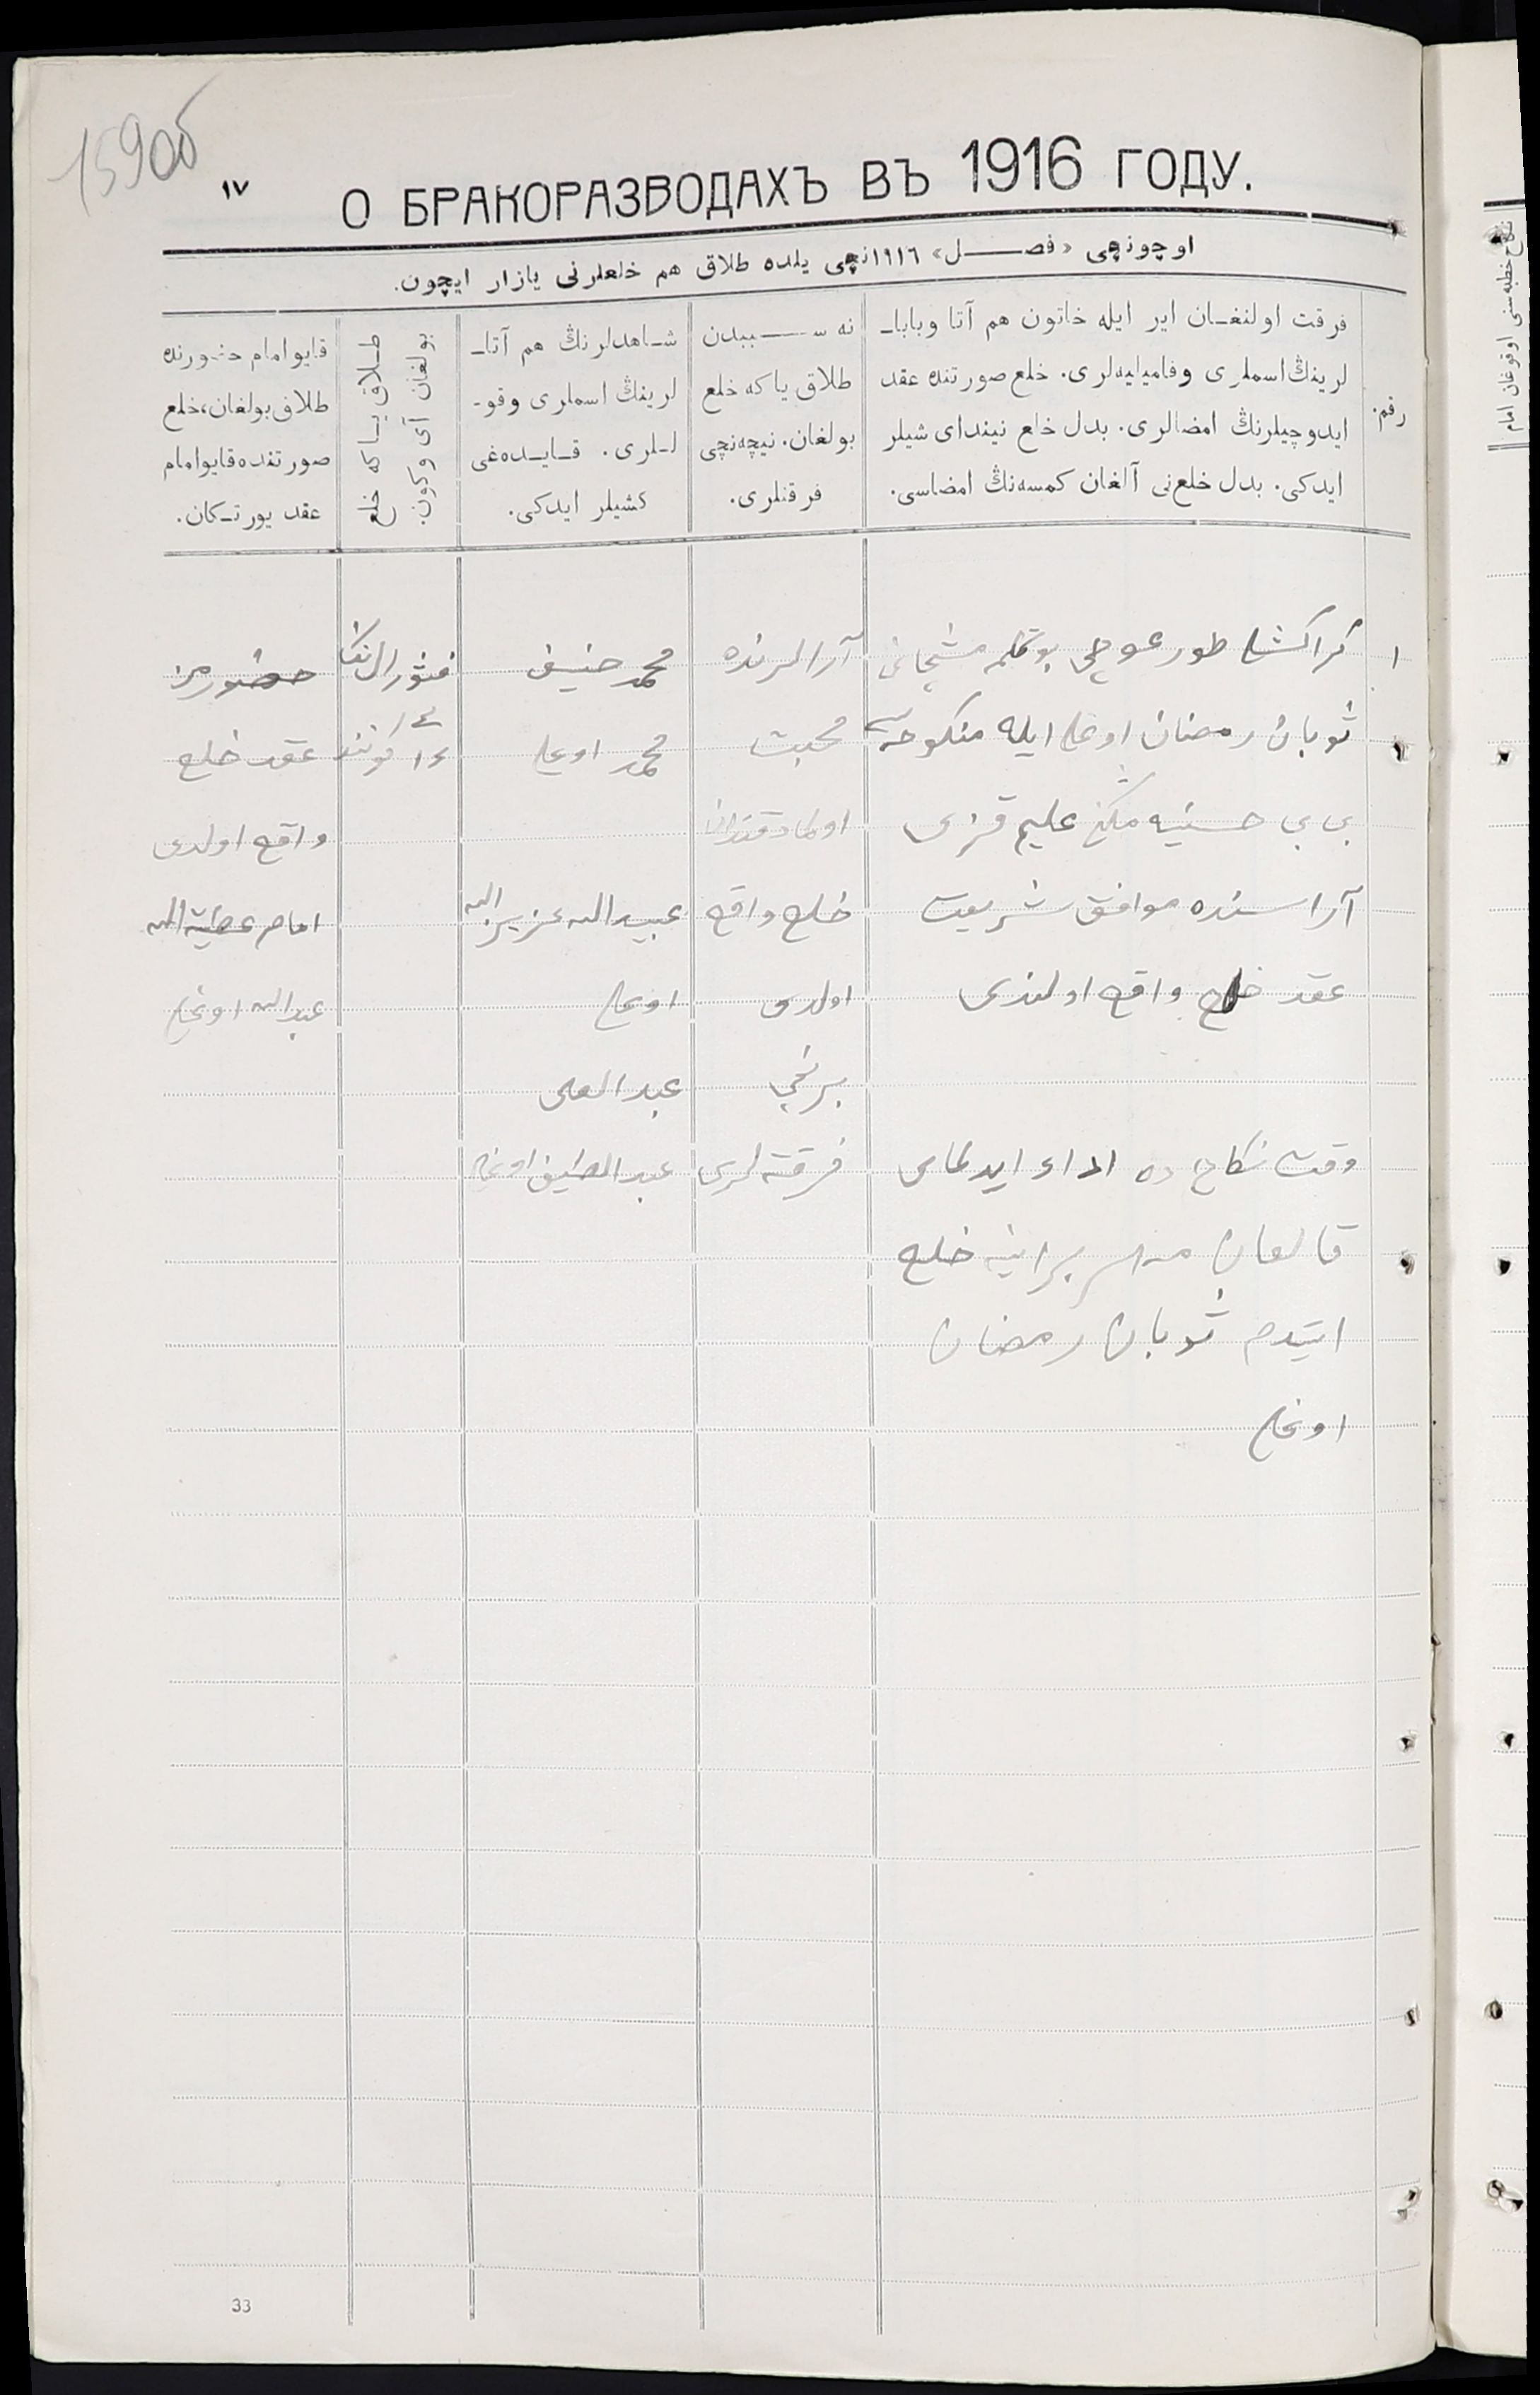 159об
١٧
О БРАКОРАЗВОДАХЪ ВЪ 1916 ГОДУ.
اوچونچی «فصل» ١٩١٦نچی یلده طلاق هم خلعلرنی یازار ایچون.
رقم.
فرقت اولنغان ایر ایله خاتون هم آتا وبابا-
لرینڭ اسملری وفامیلیه‌لری. خلع صورتنده عقد
ایدوچیلرنڭ امضالری. بدل خلع نیندای شیلر
ایدکی. بدل خلع‌نی آلغان کمسه‌نڭ امضاسی.
نه سببدن
طلاق یا که خلع
بولغان. نیچه‌نچی
فرقتلری.
شاهدلرنڭ هم آتا-
لرینڭ اسملری وقو-
للری. قایده‌غی
کشیلر ایدکی.
طلاق یا که خلع
بولغان آی وکون.
قایو امام حضورنده
طلاق بولغان، خلع
صورتنده قایو امام
عقد یورتکان.
١
طور
ثوبان رمضان اوغلی ایله منکوحه سی
بی بی حسنیه علیم قزی
آراسنده موافق شریعت
عقد خلع واقع اولندی
وقت نکاح ده اداء ایدلمای
قالغان مهر برابرینه خلع
ایتدم ثوبان رمضان
اوغلی
آرالرنده
محبت
خلع واقع
اولدی
برنچی
فرقتلری
محمد حنیف
محمد اوغلی
عبیدالله عزیزالله
اوغلی
عبدالعلی
عبداللطیف اوغلی
١٤ کونند
حضورمز
عقد خلع
واقع اولدی
امام عطیة الله
عبدالله اوغلی
33
نکاح خطبه سنی اوقوغان امام